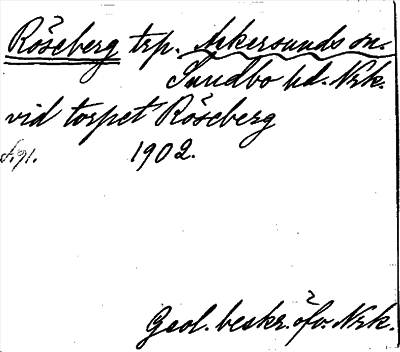 Röseberg trp. Askersunds sn.
Sundbo hd. Nrk.
vid torpet Röseberg
s. 91. 1902.
Geol. beskr. öfv. Nrk.